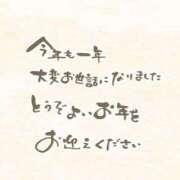 今年も一年
大変お世話になりました
どうぞよいお年を
お迎えください